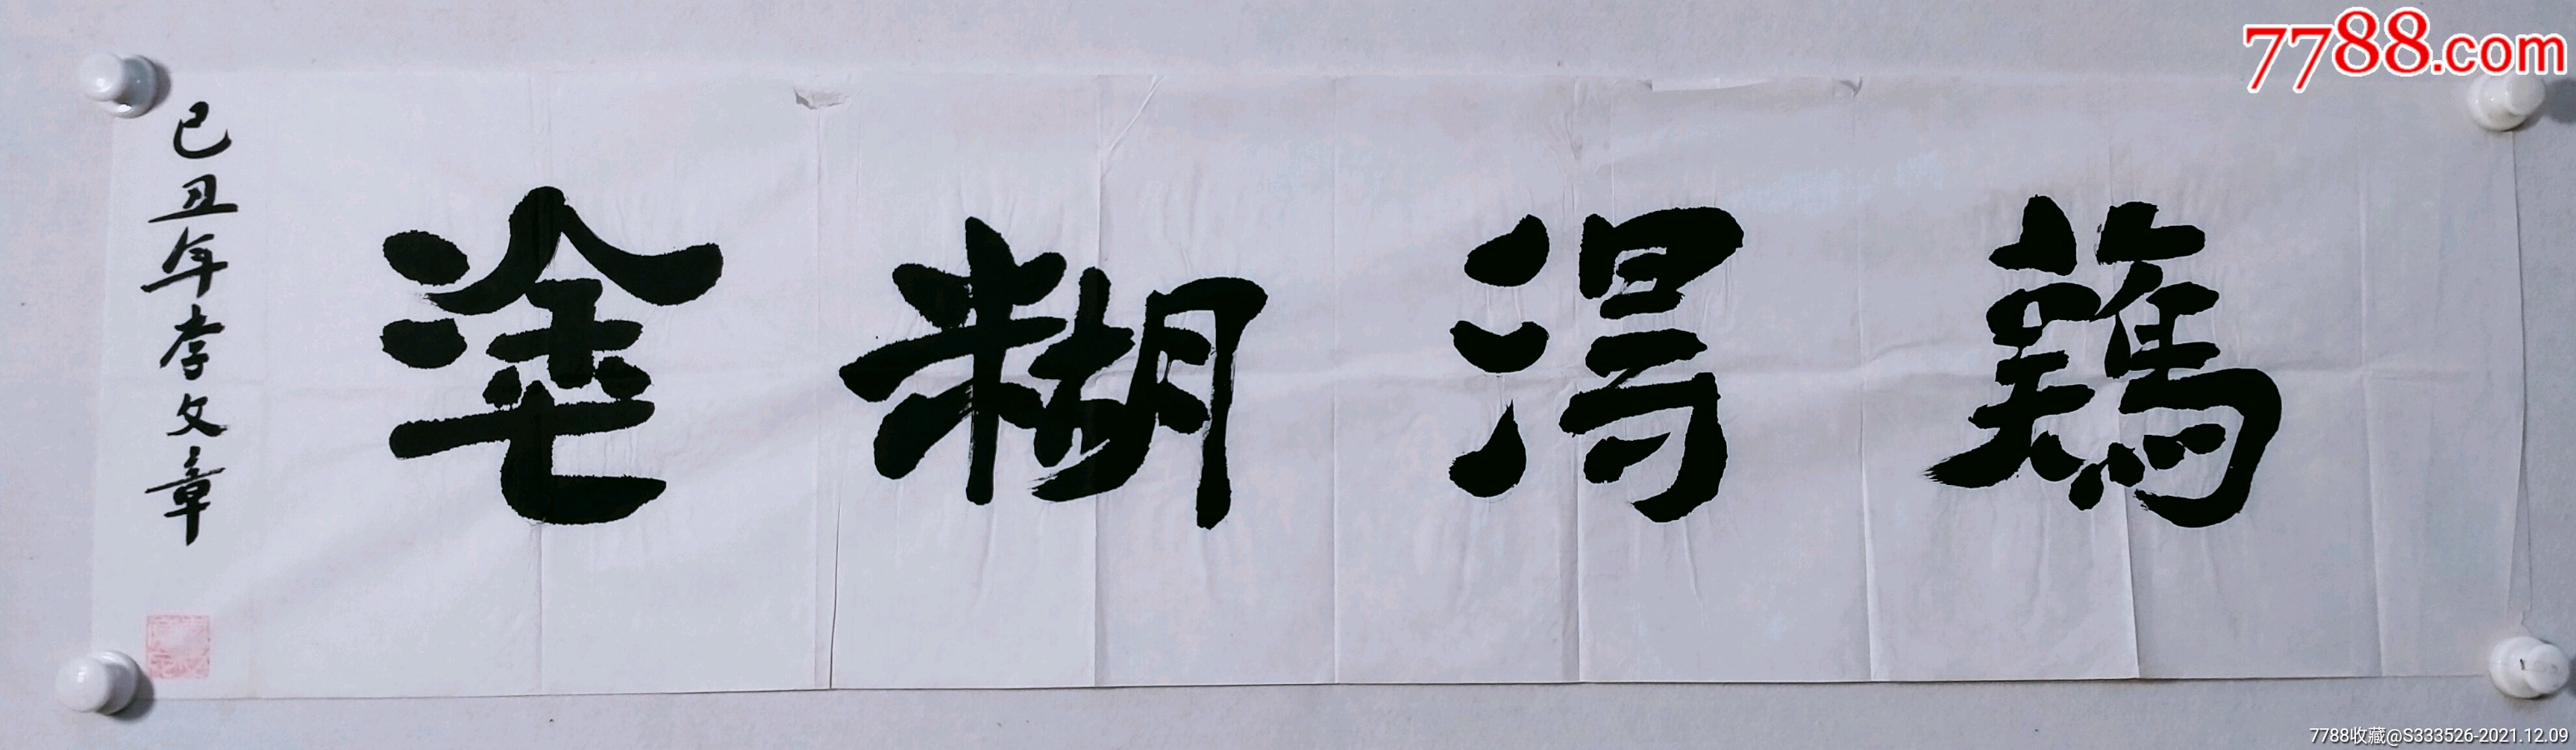 難得糊塗
己丑年李文章
7788.com
7788收藏@S333526-2021.12.09